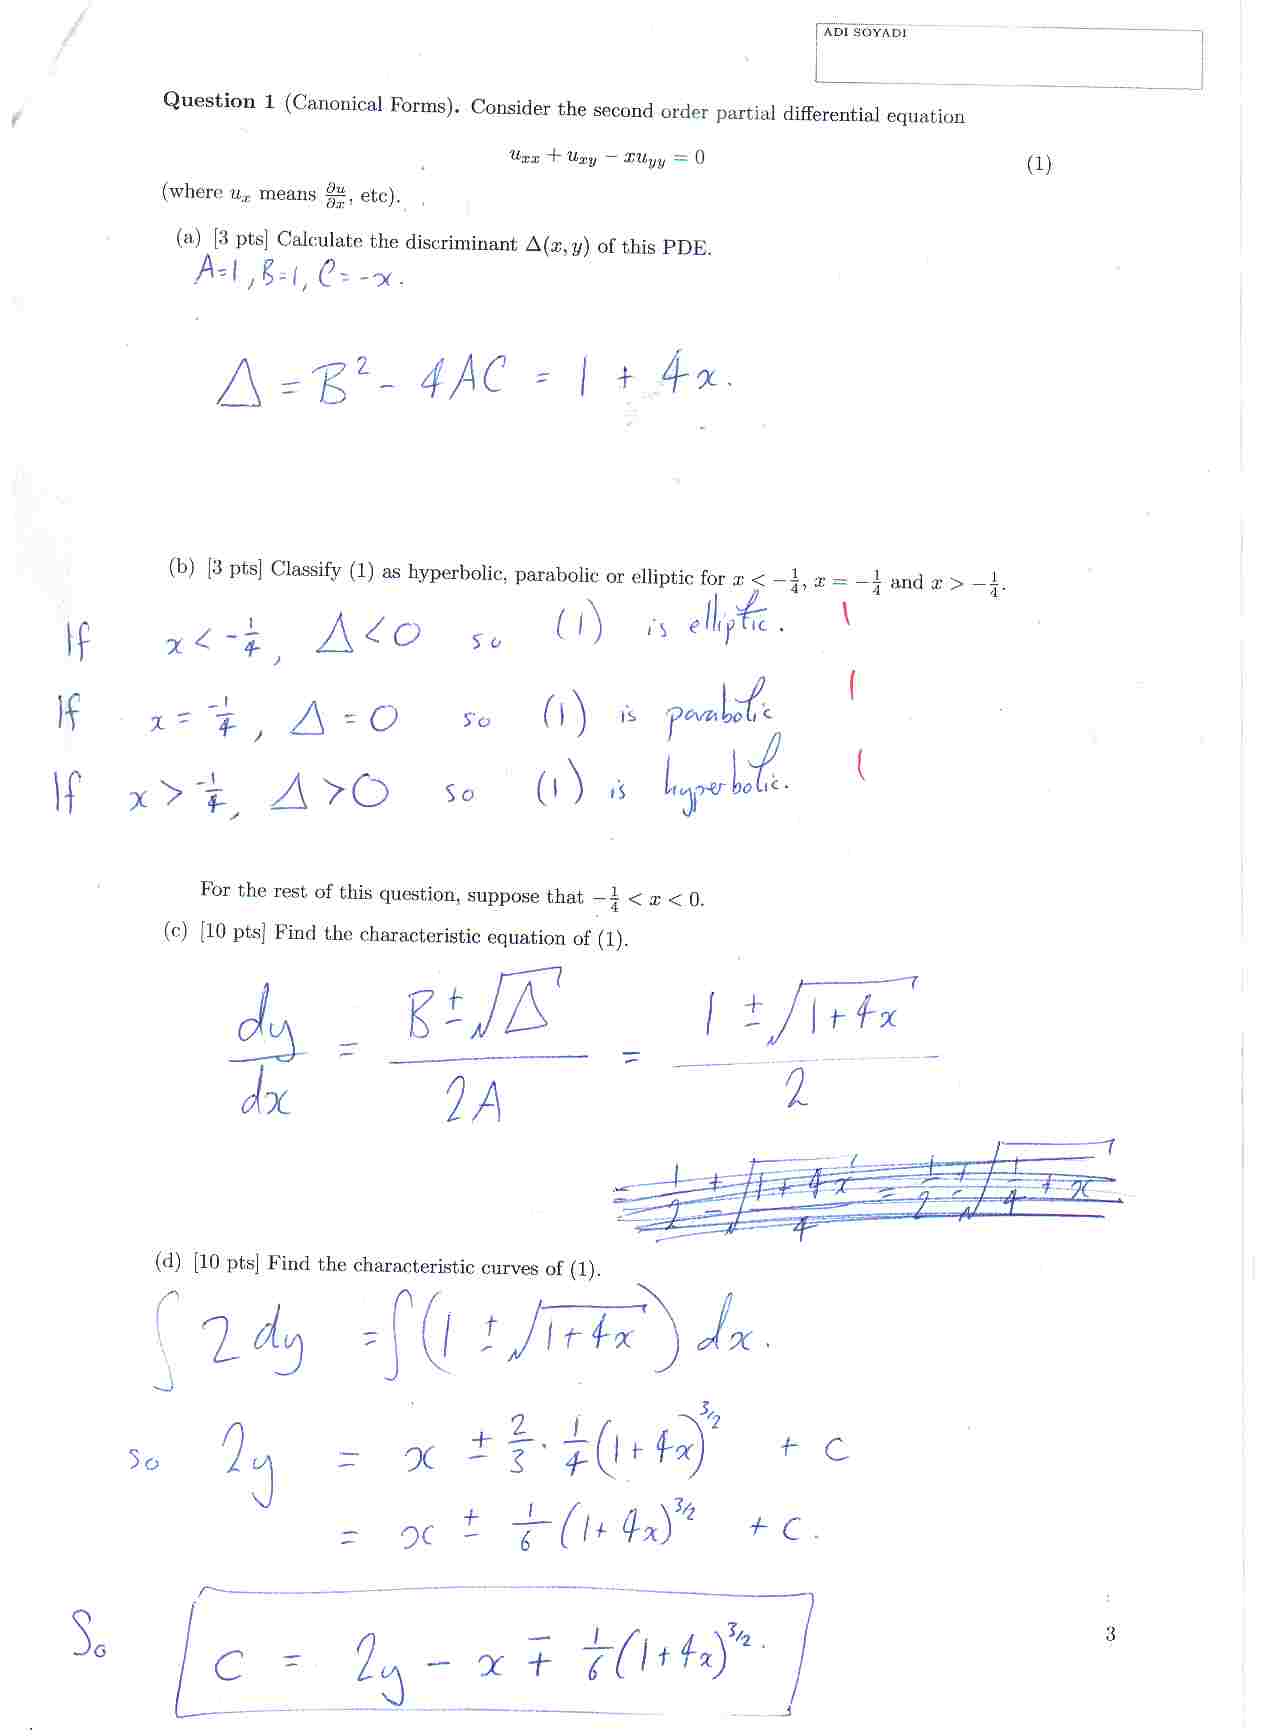 ADI SOYADI
Question 1 (Canonical Forms). Consider the second order partial differential equation
u_xx + u_xy − xu_yy = 0 (1)
(where u_x means ∂u/∂x, etc).
(a) [3 pts] Calculate the discriminant Δ(x, y) of this PDE.
A=1, B=1, C=-x.
Δ = B² - 4AC = 1 + 4x.
(b) [3 pts] Classify (1) as hyperbolic, parabolic or elliptic for x < −1/4, x = −1/4 and x > −1/4.
If x < -1/4, Δ<0 so (1) is elliptic. 1
If x = -1/4, Δ = 0 so (1) is parabolic 1
If x > -1/4, Δ>0 so (1) is hyperbolic. 1
For the rest of this question, suppose that −1/4 < x < 0.
(c) [10 pts] Find the characteristic equation of (1).
dy/dx = (B ± √Δ)/2A = (1 ± √(1+4x))/2
= 1/2 ± √((1+4x)/4) = 1/2 ± √(1/4 + x)
(d) [10 pts] Find the characteristic curves of (1).
∫ 2 dy = ∫ (1 ± √(1+4x)) dx.
so 2y = x ± 2/3 · 1/4 (1+4x)^3/2 + c
= x ± 1/6 (1+4x)^3/2 + c.
So c = 2y - x ∓ 1/6 (1+4x)^3/2.
3